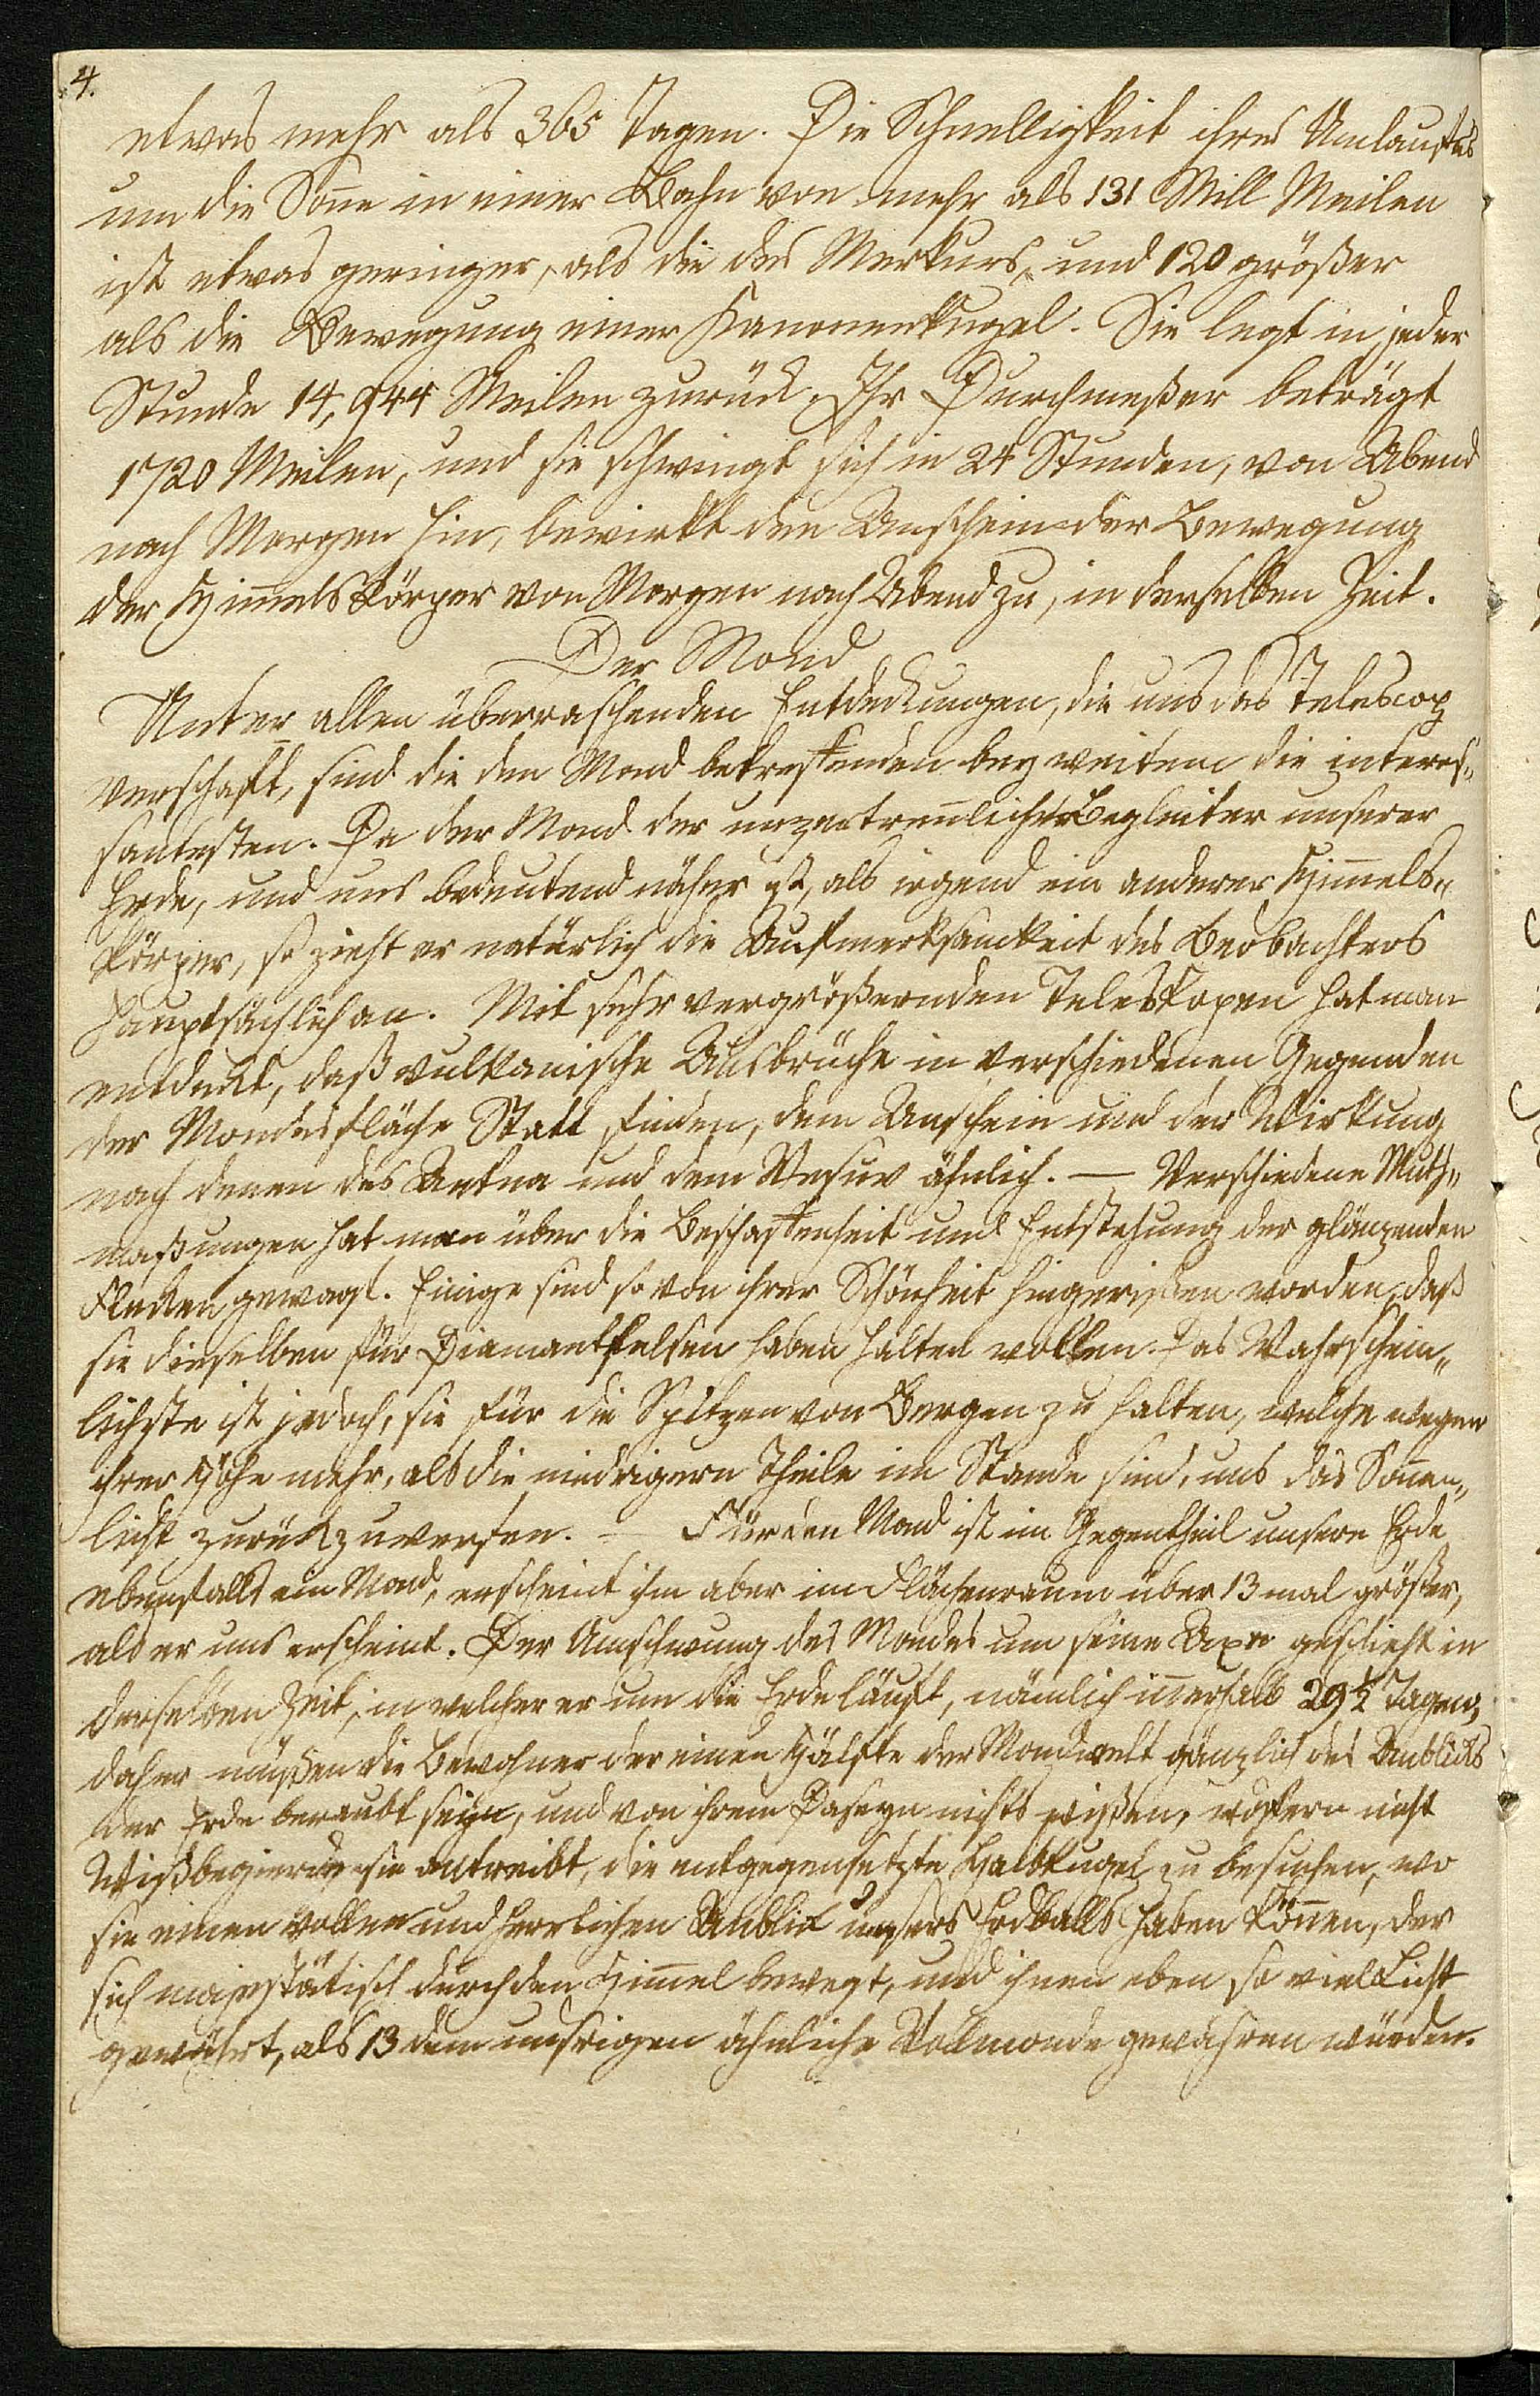 4.
etwas mehr als 365 Tagen. Die Schnelligkeit ihres Umlaufes
um die Soñe in einer Bahn von mehr als 131 Mill Meilen
ist etwas geringer, als die des Merkurs, und 120 größer
als die Bewegung einer Kanonenkugel. Sie legt in jeder
Stunde 14,944 Meilen zurück. Ihr Durchmeßer beträgt
1720 Meilen, und sie schwingt sich in 24 Stunden, von Abend
nach Morgen hin, bewirkt den Anschein der Bewegung
der Him̃elskörper von Morgen nach Abend zu, in derselben Zeit.
Der Mond
Unter allen überraschenden Entdeckungen, die uns das Telescop
verschafft, sind die den Mond betreffenden bey weitem die interes„
santesten. Da der Mond der unzertreñliche Begleiter unserer
Erde, und uns bedeutend näher ist, als irgend ein anderer Him̃els„
körper, so zieht er natürlich die Aufmerksamkeit des Beobachters
hauptsächlich an. Mit sehr vergrößernden Teleskopen hat man
entdeckt, daß vulkanische Ausbrüche in verschiedenen Gegenden
der Mondesfläche Statt finden, dem Anschein und der Wirkung
nach denen des Aetna und dem Vesuv ähnlich. — Verschiedene Muth„
maßungen hat man über die Beschaffenheit und Entstehung der glänzenden
Flecken gewagt. Einige sind so von ihrer Schönheit hingerißen worden, daß
sie dieselben für Diamantfelsen haben halten wollen. Das Wahrschein„
lichste ist jedoch, sie für die Spitzen von Bergen zu halten, welche wegen
ihrer Höhe mehr, als die niedrigern Theile im Stande sind, uns das Soñen„
licht zurückzuwerfen. — Für den Mond ist im Gegentheil unsere Erde
ebenfalls ein Mond, erscheint ihm aber im Flächenraum über 13 mal größer,
als er uns erscheint. Der Umschwung des Mondes um seine Axe geschieht in
derselben Zeit, in welcher er um die Erde läuft, nämlich iñerhalb 29½ Tagen,
daher müßen die Bewohner der einen Hälfte der Mondwelt gänzlich des Anblicks
der Erde beraubt seyn, und von ihrem Daseyn nichts wißen, wofern nicht
Wißbegierde sie antreibt, die entgegensetzte Halbkugel zu besuchen, wo
sie einen vollen und herrlichen Anblick unsers Erdballs haben köñen, der
sich majestätisch durch den Him̃el bewegt, und ihnen eben so viel Licht
gewährt, als 13 dem unsrigen ähnliche Vollmonde gewähren würden.